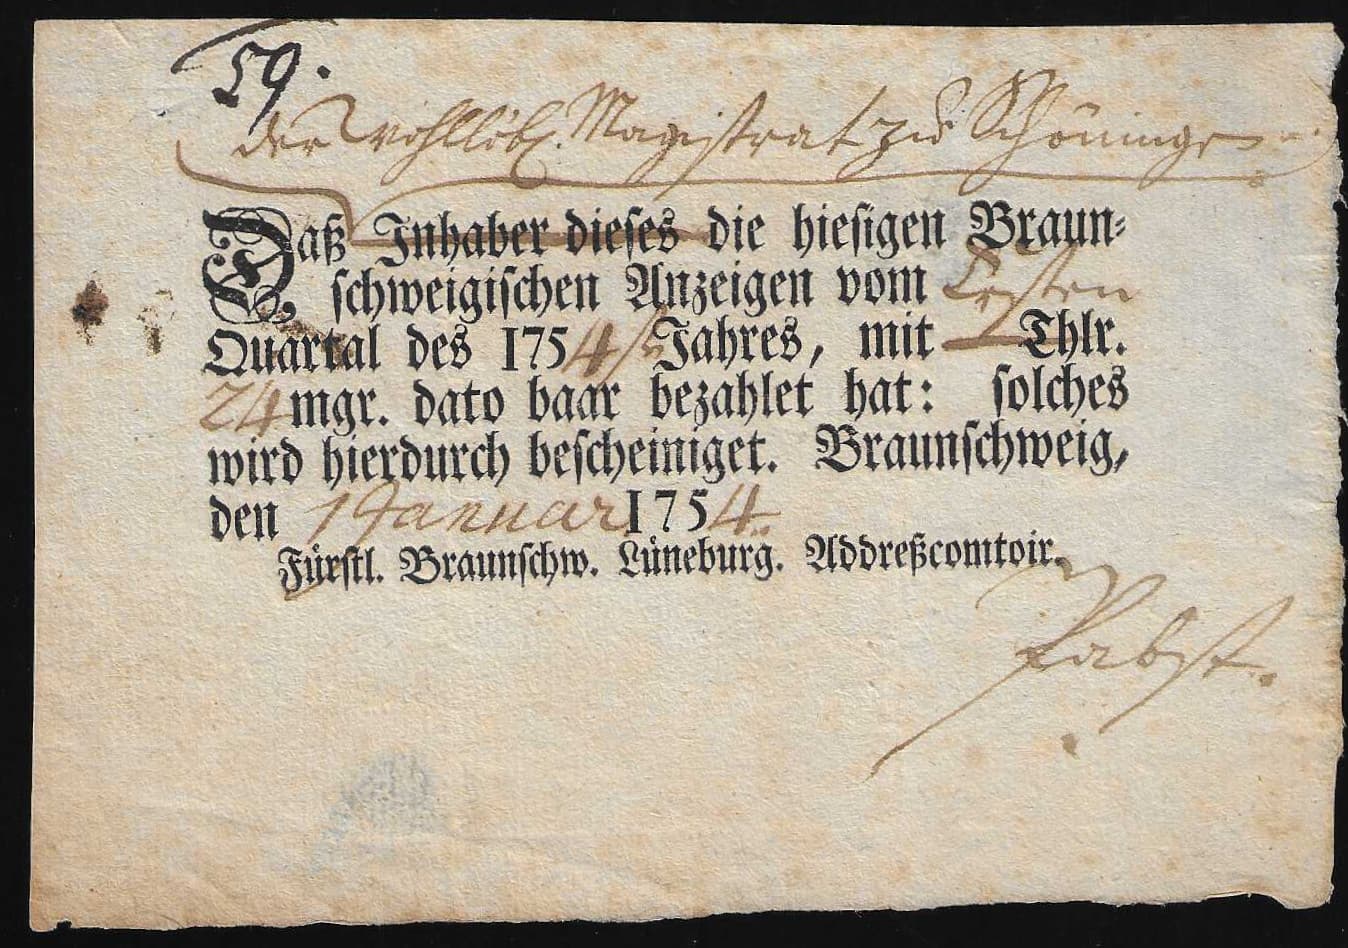 59.
der wohllöbl. Magistrat zu Schöningen
Daß Inhaber dieses die hiesigen Braun-
schweigischen Anzeigen vom Ersten
Quartal des 1754 Jahres, mit Thlr.
24 mgr. dato baar bezahlet hat: solches
wird hierdurch bescheiniget. Braunschweig,
den 1 Januar 1754.
Fürstl. Braunschw. Lüneburg. Addreßcomtoir.
Pabst.